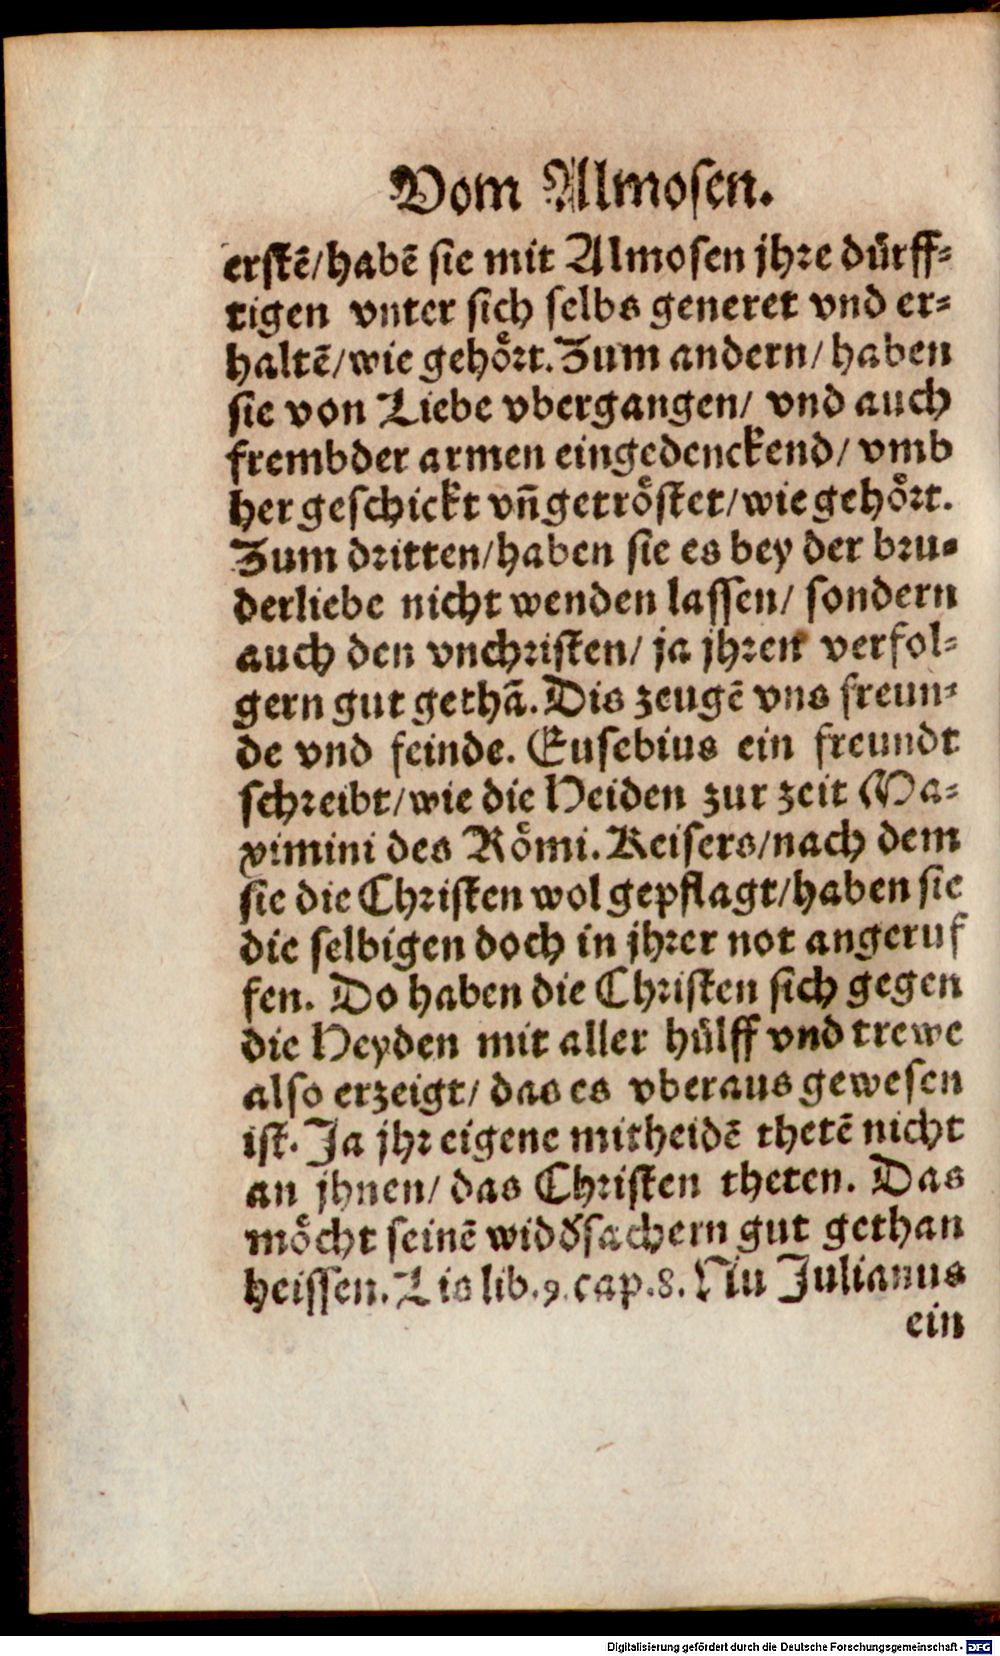 Vom Almosen.
erstẽ/habẽ sie mit Almosen jhre dürff-
tigen vnter sich selbs generet vnd er-
haltẽ/wie gehört. Zum andern/haben
sie von Liebe vbergangen/ vnd auch
frembder armen eingedenckend/ vmb
her geschickt vñ getröstet/wie gehört.
Zum dritten/haben sie es bey der bru-
derliebe nicht wenden lassen/ sondern
auch den vnchristen/ ja jhren verfol-
gern gut gethã. Dis zeugẽ vns freun-
de vnd feinde. Eusebius ein freundt
schreibt/wie die Heiden zur zeit Ma-
ximini des Römi. Keisers/nach dem
sie die Christen wol gepflagt/haben sie
die selbigen doch in jhrer not angeruf
fen. Do haben die Christen sich gegen
die Heyden mit aller hülff vnd trewe
also erzeigt/ das es vberaus gewesen
ist. Ja jhr eigene mitheidẽ thetẽ nicht
an jhnen/ das Christen theten. Das
möcht seinẽ widd'sachern gut gethan
heissen. Lis lib.9.cap.8. Nu Julianus
ein
Digitalisierung gefördert durch die Deutsche Forschungsgemeinschaft - DFG